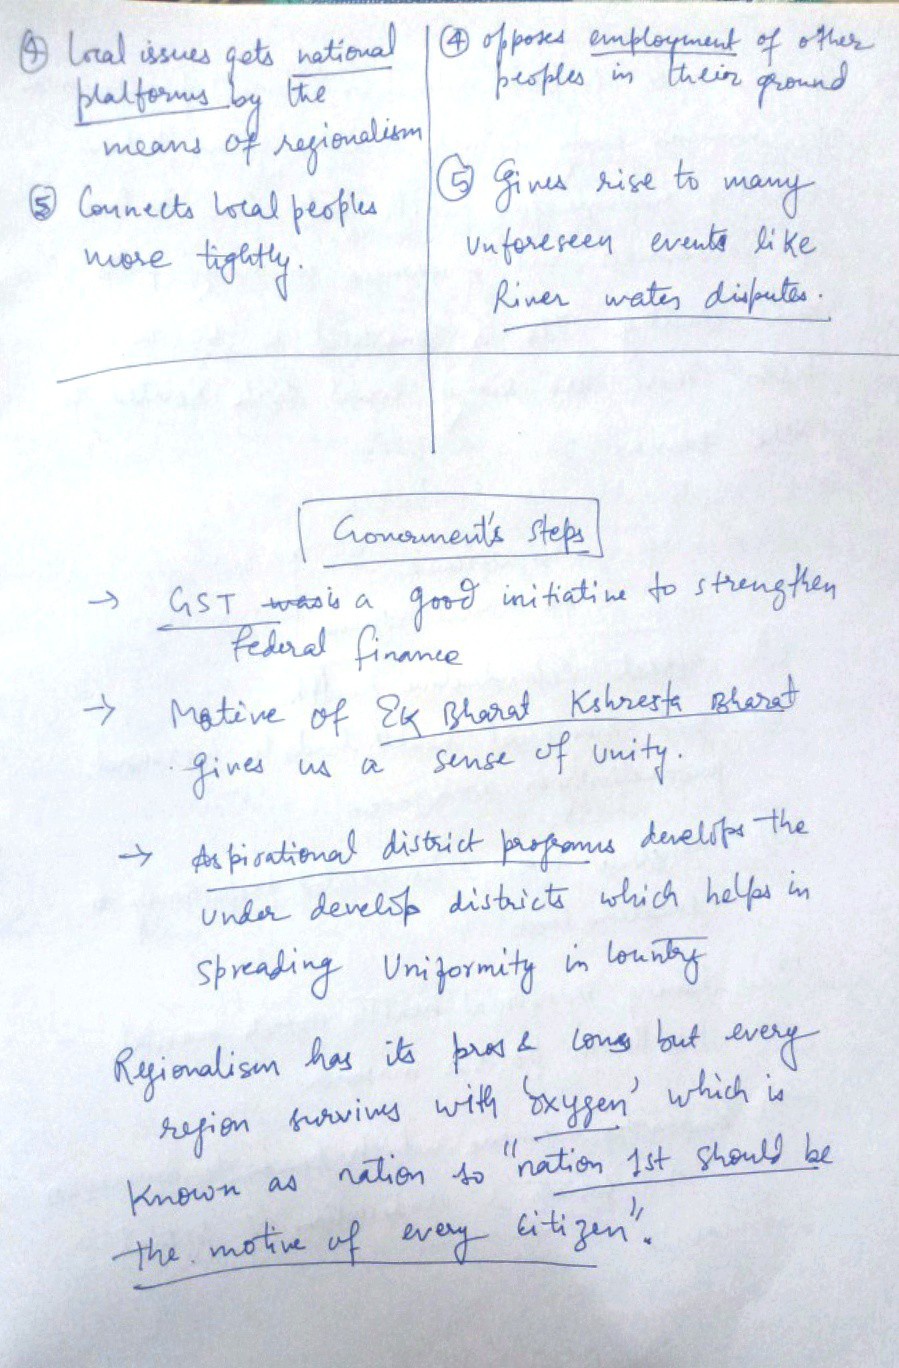 ④ Local issues gets national
platforms by the
means of regionalism
⑤ Connects local peoples
more tightly.
④ opposes employment of other
peoples in their ground
⑤ Gives rise to many
unforeseen events like
River water disputes.
Government's steps
→ GST was is a good initiative to strengthen
federal finance
→ Motive of Ek Bharat Kshresta Bharat
gives us a sense of unity.
→ Aspirational district programs develops the
under develop districts which helps in
spreading Uniformity in country
Regionalism has its pros & cons but every
region survives with 'oxygen' which is
known as nation so "nation 1st should be
the motive of every citizen".